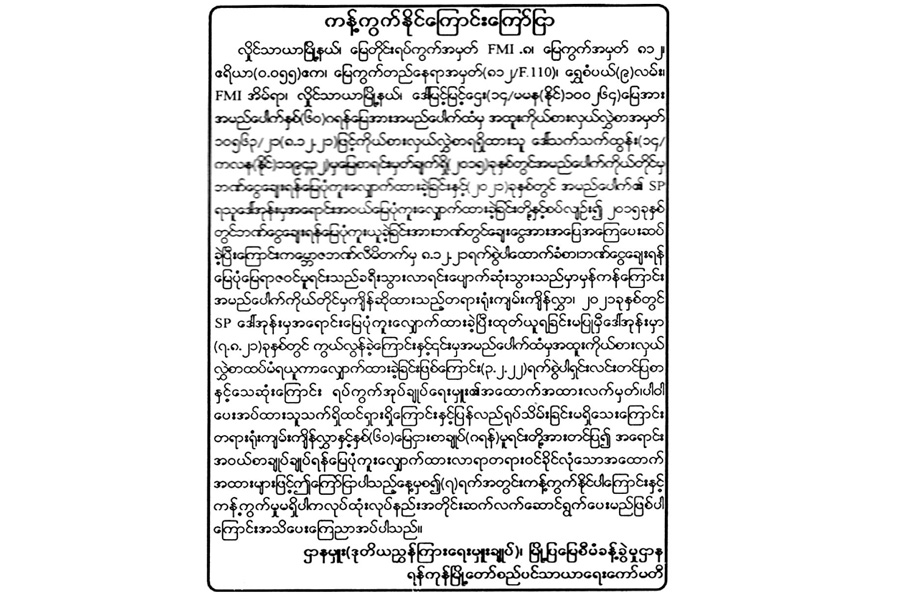 ကန့်ကွက်နိုင်ကြောင်းကြော်ငြာ
လှိုင်သာယာမြို့နယ်၊ မြေတိုင်းရပ်ကွက်အမှတ် FMI .၈၊ မြေကွက်အမှတ် ၈၁၂၊
ဧရိယာ(၀.၀၅၅)ဧက၊ မြေကွက်တည်နေရာအမှတ်(၈၁၂/F.110)၊ ရွှေစံပယ်(၉)လမ်း၊
FMI အိမ်ရာ၊ လှိုင်သာယာမြို့နယ်၊ ဒေါ်မြင့်မြင့်ဌေး(၁၄/မမန(နိုင်)၁၀၀၂၆၄)မြေအား
အမည်ပေါက်နှစ်(၆၀)ဂရန်မြေအားအမည်ပေါက်ထံမှ အထူးကိုယ်စားလှယ်လွှဲစာအမှတ်
၁၀၅၆၃/၂၁(၈.၁၂.၂၁)ဖြင့်ကိုယ်စားလှယ်လွှဲစာရရှိထားသူ ဒေါ်သက်သက်ထွန်း(၁၄/
ကလန(နိုင်)၁၁၉၄၃၂)မှမြေစာရင်းမှတ်ချက်ရှိ(၂၀၁၅)ခုနှစ်တွင်အမည်ပေါက်ကိုယ်တိုင်မှ
ဘဏ်ငွေချေးရန်မြေပုံကူးလျှောက်ထားခဲ့ခြင်းနှင့်(၂၀၂၁)ခုနှစ်တွင် အမည်ပေါက်၏ SP
ရသူဒေါ်အုန်းမှအရောင်းအဝယ်မြေပုံကူးလျှောက်ထားခဲ့ခြင်းတို့နှင့်စပ်လျဉ်း၍ ၂၀၁၅ခုနှစ်
တွင်ဘဏ်ငွေချေးရန်မြေပုံကူးယူခဲ့ခြင်းအားဘဏ်တွင်ချေးငွေအားအပြေအကြေပေးဆပ်
ခဲ့ပြီးကြောင်းကမ္ဘောဇဘဏ်လီမိတက်မှ ၈.၁၂.၂၁ရက်စွဲပါထောက်ခံစာ၊ဘဏ်ငွေချေးရန်
မြေပုံမြေရာဇဝင်မူရင်းသည်ခရီးသွားလာရင်းပျောက်ဆုံးသွားသည်မှာမှန်ကန်ကြောင်း
အမည်ပေါက်ကိုယ်တိုင်မှကျိန်ဆိုထားသည့်တရားရုံးကျမ်းကျိန်လွှာ၊ ၂၀၂၁ခုနှစ်တွင်
SP ဒေါ်အုန်းမှအရောင်းမြေပုံကူးလျှောက်ထားခဲ့ပြီးထုတ်ယူရခြင်းမပြုမှီဒေါ်အုန်းမှာ
(၇.၈.၂၁)ခုနှစ်တွင် ကွယ်လွန်ခဲ့ကြောင်းနှင့်၎င်းမှအမည်ပေါက်ထံမှအထူးကိုယ်စားလှယ်
လွှဲစာထပ်မံရယူကာလျှောက်ထားခဲ့ခြင်းဖြစ်ကြောင်း(၃.၂.၂၂)ရက်စွဲပါရှင်းလင်းတင်ပြစာ
နှင့်သေဆုံးကြောင်း ရပ်ကွက်အုပ်ချုပ်ရေးမှူး၏အထောက်အထားလက်မှတ်၊ပါဝါ
ပေးအပ်ထားသူသက်ရှိထင်ရှားရှိကြောင်းနှင့်ပြန်လည်ရုပ်သိမ်းခြင်းမရှိသေးကြောင်း
တရားရုံးကျမ်းကျိန်လွှာနှင့်နှစ်(၆၀)မြေငှားစာချုပ်(ဂရန်)မူရင်းတို့အားတင်ပြ၍ အရောင်း
အဝယ်စာချုပ်ချုပ်ရန်မြေပုံကူးလျှောက်ထားလာရာတရားဝင်ခိုင်လုံသောအထောက်
အထားများဖြင့်ဤကြော်ငြာပါသည့်နေ့မှစ၍(၇)ရက်အတွင်းကန့်ကွက်နိုင်ပါကြောင်းနှင့်
ကန့်ကွက်မှုမရှိပါကလုပ်ထုံးလုပ်နည်းအတိုင်းဆက်လက်ဆောင်ရွက်ပေးမည်ဖြစ်ပါ
ကြောင်းအသိပေးကြေညာအပ်ပါသည်။
ဌာနမှူး(ဒုတိယညွှန်ကြားရေးမှူးချုပ်)၊ မြို့ပြမြေစီမံခန့်ခွဲမှုဌာန
ရန်ကုန်မြို့တော်စည်ပင်သာယာရေးကော်မတီ